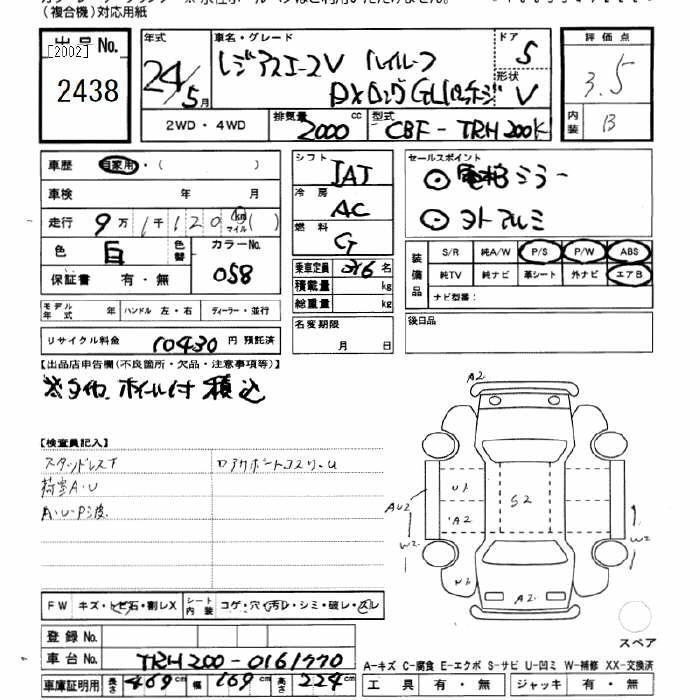 (複合機)対応用紙
出品No.
[2002]
2438
年式
24/5月
車名・グレード
レジアスエースV ハイルーフ
DXロングGLパッケージ
ドア
5
形状
V
評価点
3.5
内装
B
2WD・4WD
排気量
2000 cc
型式
CBF-TRH200K
車歴 自家用・( )
車検 年 月
走行 9万1千120 km マイル ( )
色 白 色替 カラーNo. 058
保証書 有・無
モデル年式 年 ハンドル 左・右 ディーラー・並行
リサイクル料金 10430 円 預託済
シフト IAT
冷房 AC
燃料 G
乗車定員 3/6 名
積載量 kg
総重量 kg
名変期限
月 日
セールスポイント
電格ミラー
ヨトアルミ
装備品
S/R 純A/W P/S P/W ABS
純TV 純ナビ 革シート 外ナビ エアB
ナビ型番:
後日品
【出品店申告欄(不良箇所・欠品・注意事項等)】
※タイヤホイール付 積込
【検査員記入】
スタッドレスT
荷室A・U
A・U・P波
ロアサポートコスリ・U
A2
U1
A2
S2
AU2
W2
W2
U1
A2
FW キズ・トビ石・割レX シート内装 コゲ・穴・汚レ・シミ・破レ・スレ
スペア
登録No.
車台No. TRH200-0161770
車庫証明用 長さ 469cm 幅 169cm 高さ 224cm
A-キズ C-腐食 E-エクボ S-サビ U-凹ミ W-補修 XX-交換済
工具 有・無 ジャッキ 有・無